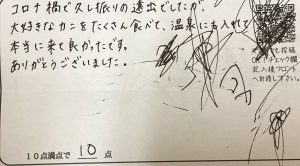 コロナ禍で久し振りの遠出でしたが、
大好きなカニをたくさん食べて、温泉にも入れて
本当に来て良かったです。
ありがとうございました。
チェック欄
記入後フロント
へお渡し下さい。
10点満点で 10 点